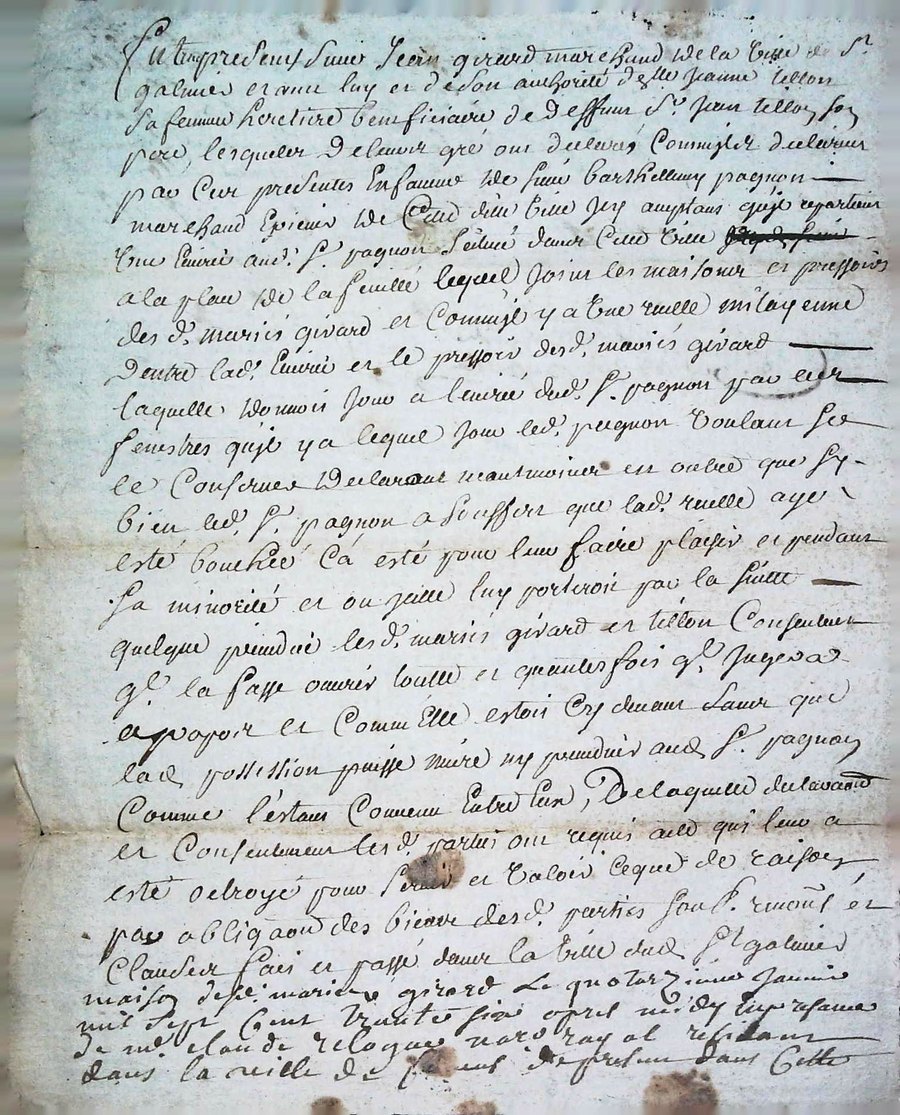 furent presents Sieur Jean girard marchand de la Ville de St
galmier et avec luy et de son authorité delle Jeanne tillon
sa femme heretiere beneficiaire de deffunt Sr. Jean tillon son
pere, lesquels de leur gré ont declaré Comme ils declarent
par Ces presentes En faveur de Sieur barthellemy pagnon
marchand Epicier de Cette ditte Ville Icy acceptant qu'il appartient
Une Ecurie aud. Sr. pagnon Scituée dans Cette Ville
a la place de la feuillé lequel Joint les maisons et pressoirs
des d. mariés girard et Comme il y a Une ruelle mitayenne
Dentre lad. Ecurie et le pressoir desd. mariés girard
laquelle donnoit Jour a lecurie dud. Sr. pagnon par les
fenestres qu'il y a lequel Jour led. pagnon Voulant Se
le Conserver Declarant neantmoins en outre que Sy
bien led. Sr. pagnon a Souffert que lad. ruelle aye
esté bouchée Ca esté pour leur faire plaisir et pendant
Sa minorité et ou icelle luy porteroit par la Suitte
quelque prejudice lesd. mariés girard et tillon Consentent
ql. la fasse ouvrir toutte et quantes fois ql. Jugera
apropos et Comme Elle estoit Cy devant Sans que
lad possession puisse nuire ny prejudicier aud Sr. pagnon
Comme l'estant Convenu Entre Eux, De laquelle declaraon
et Consentement lesd. parties ont requis acte qui leur a
esté octroyé pour Servir et Valoir Ceque de raison
par obligaon des biens desd. parties Soub. renons. et
Clauses fait et passé dans la Ville dud St galmier
maison desd. mariés girard Le quatorzieme Janvier
mil Sept Cent trente Six apres midy En presence
de me. claude relogue nore royal residant
dans la ville de de present dans Cette